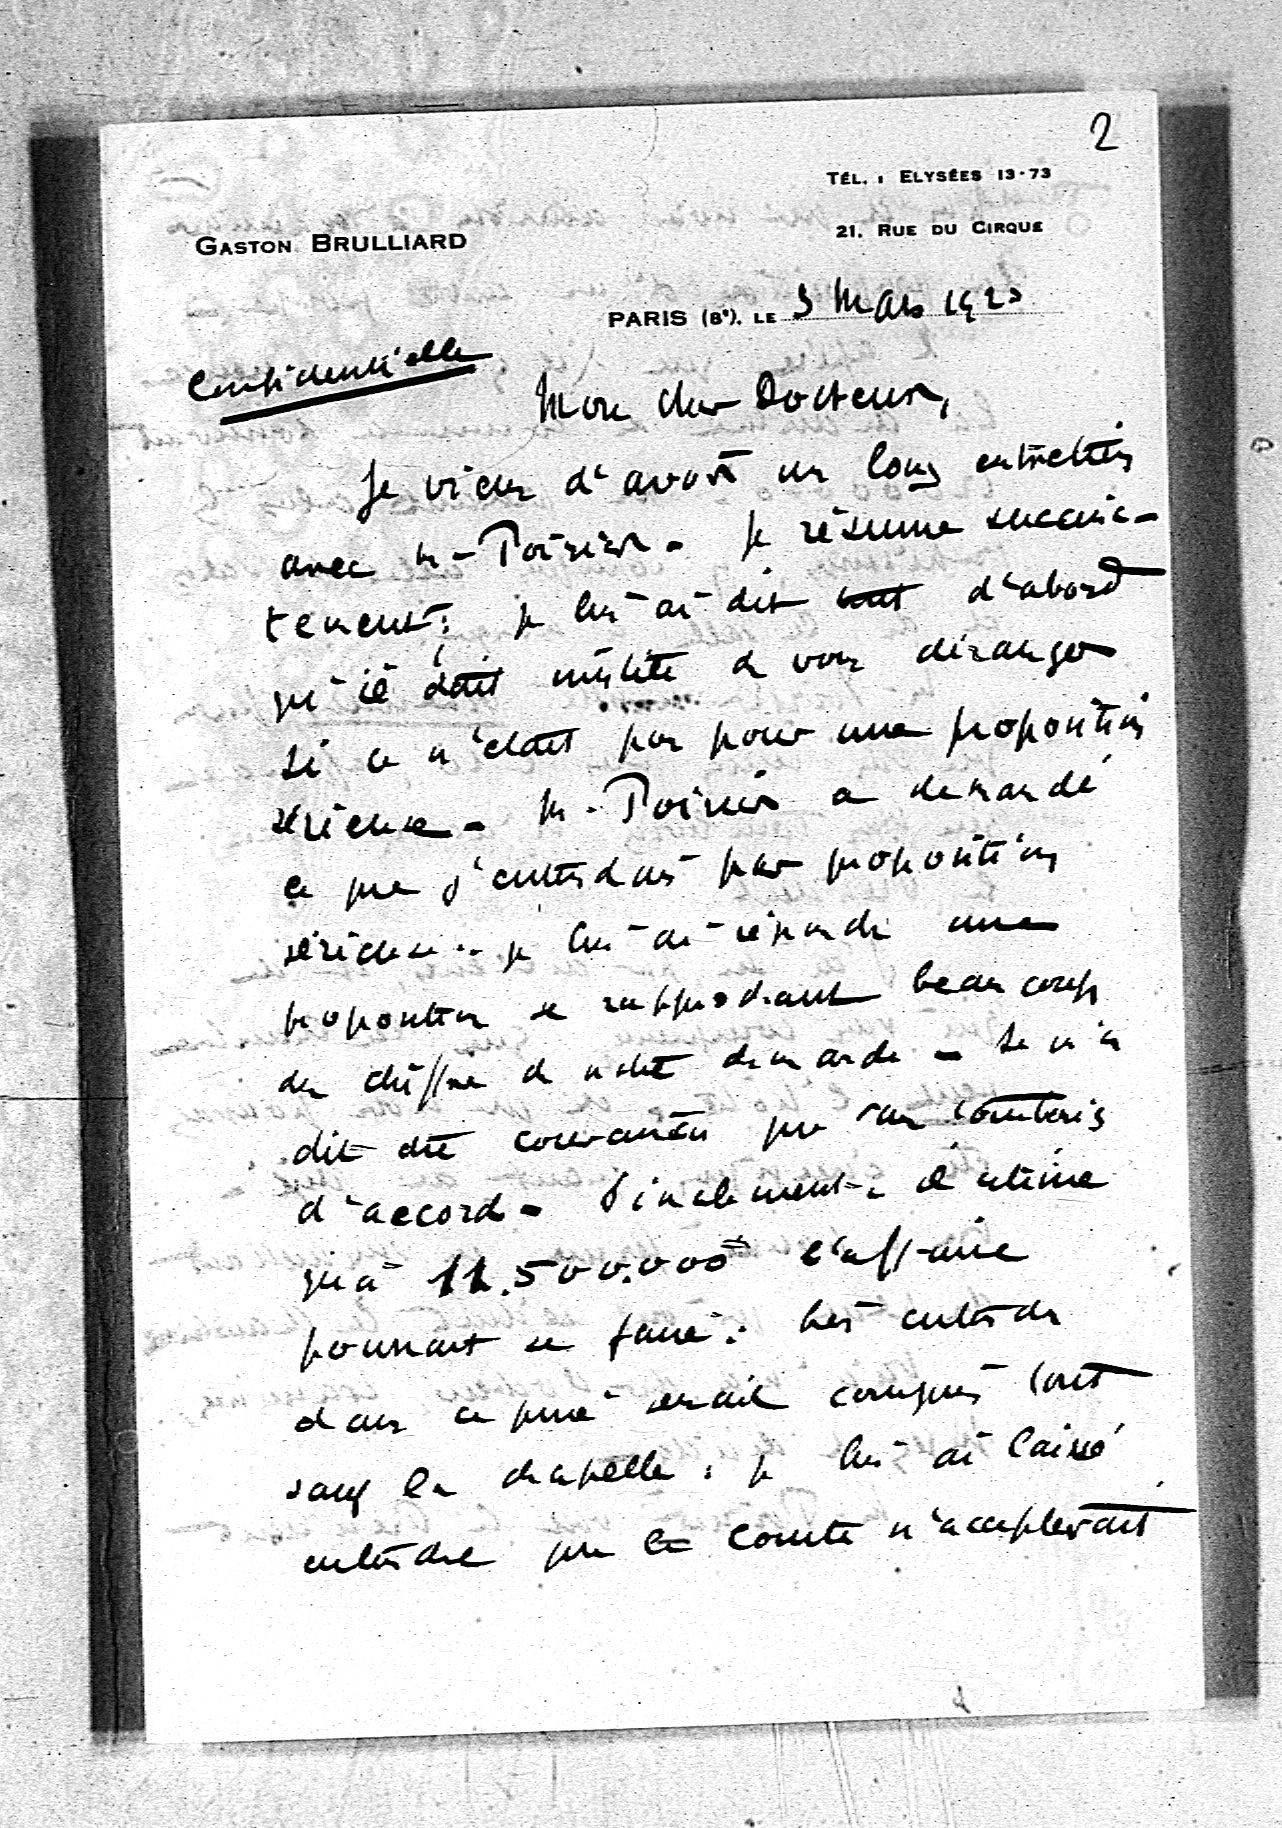 2
TÉL. : ELYSÉES 13-73
GASTON BRULLIARD
21. RUE DU CIRQUE
PARIS (8e). LE 3 Mars 192
Confidentielle
Mon cher Docteur,
Je viens d'avoir un long entretien
avec M. Poirier. je résume succinc-
tement; je lui ai dit tout d'abord
qu'il était inutile de vous déranger
si ce n'était pas pour une proposition
sérieuse. M. Poirier a demandé
ce que j'entendais par proposition
sérieuse.. je lui ai répondu une
proposition se rapprochant beaucoup
du chiffre de notre demande. Je n'ai
dit
d'accord. Finalement il estime
qu'à 11.500.000 l'affaire
pourrait se faire. bien entendu
dans ce prix serait compris tout
sauf la chapelle. je lui ai laissé
entendre que le Comte n'accepterait